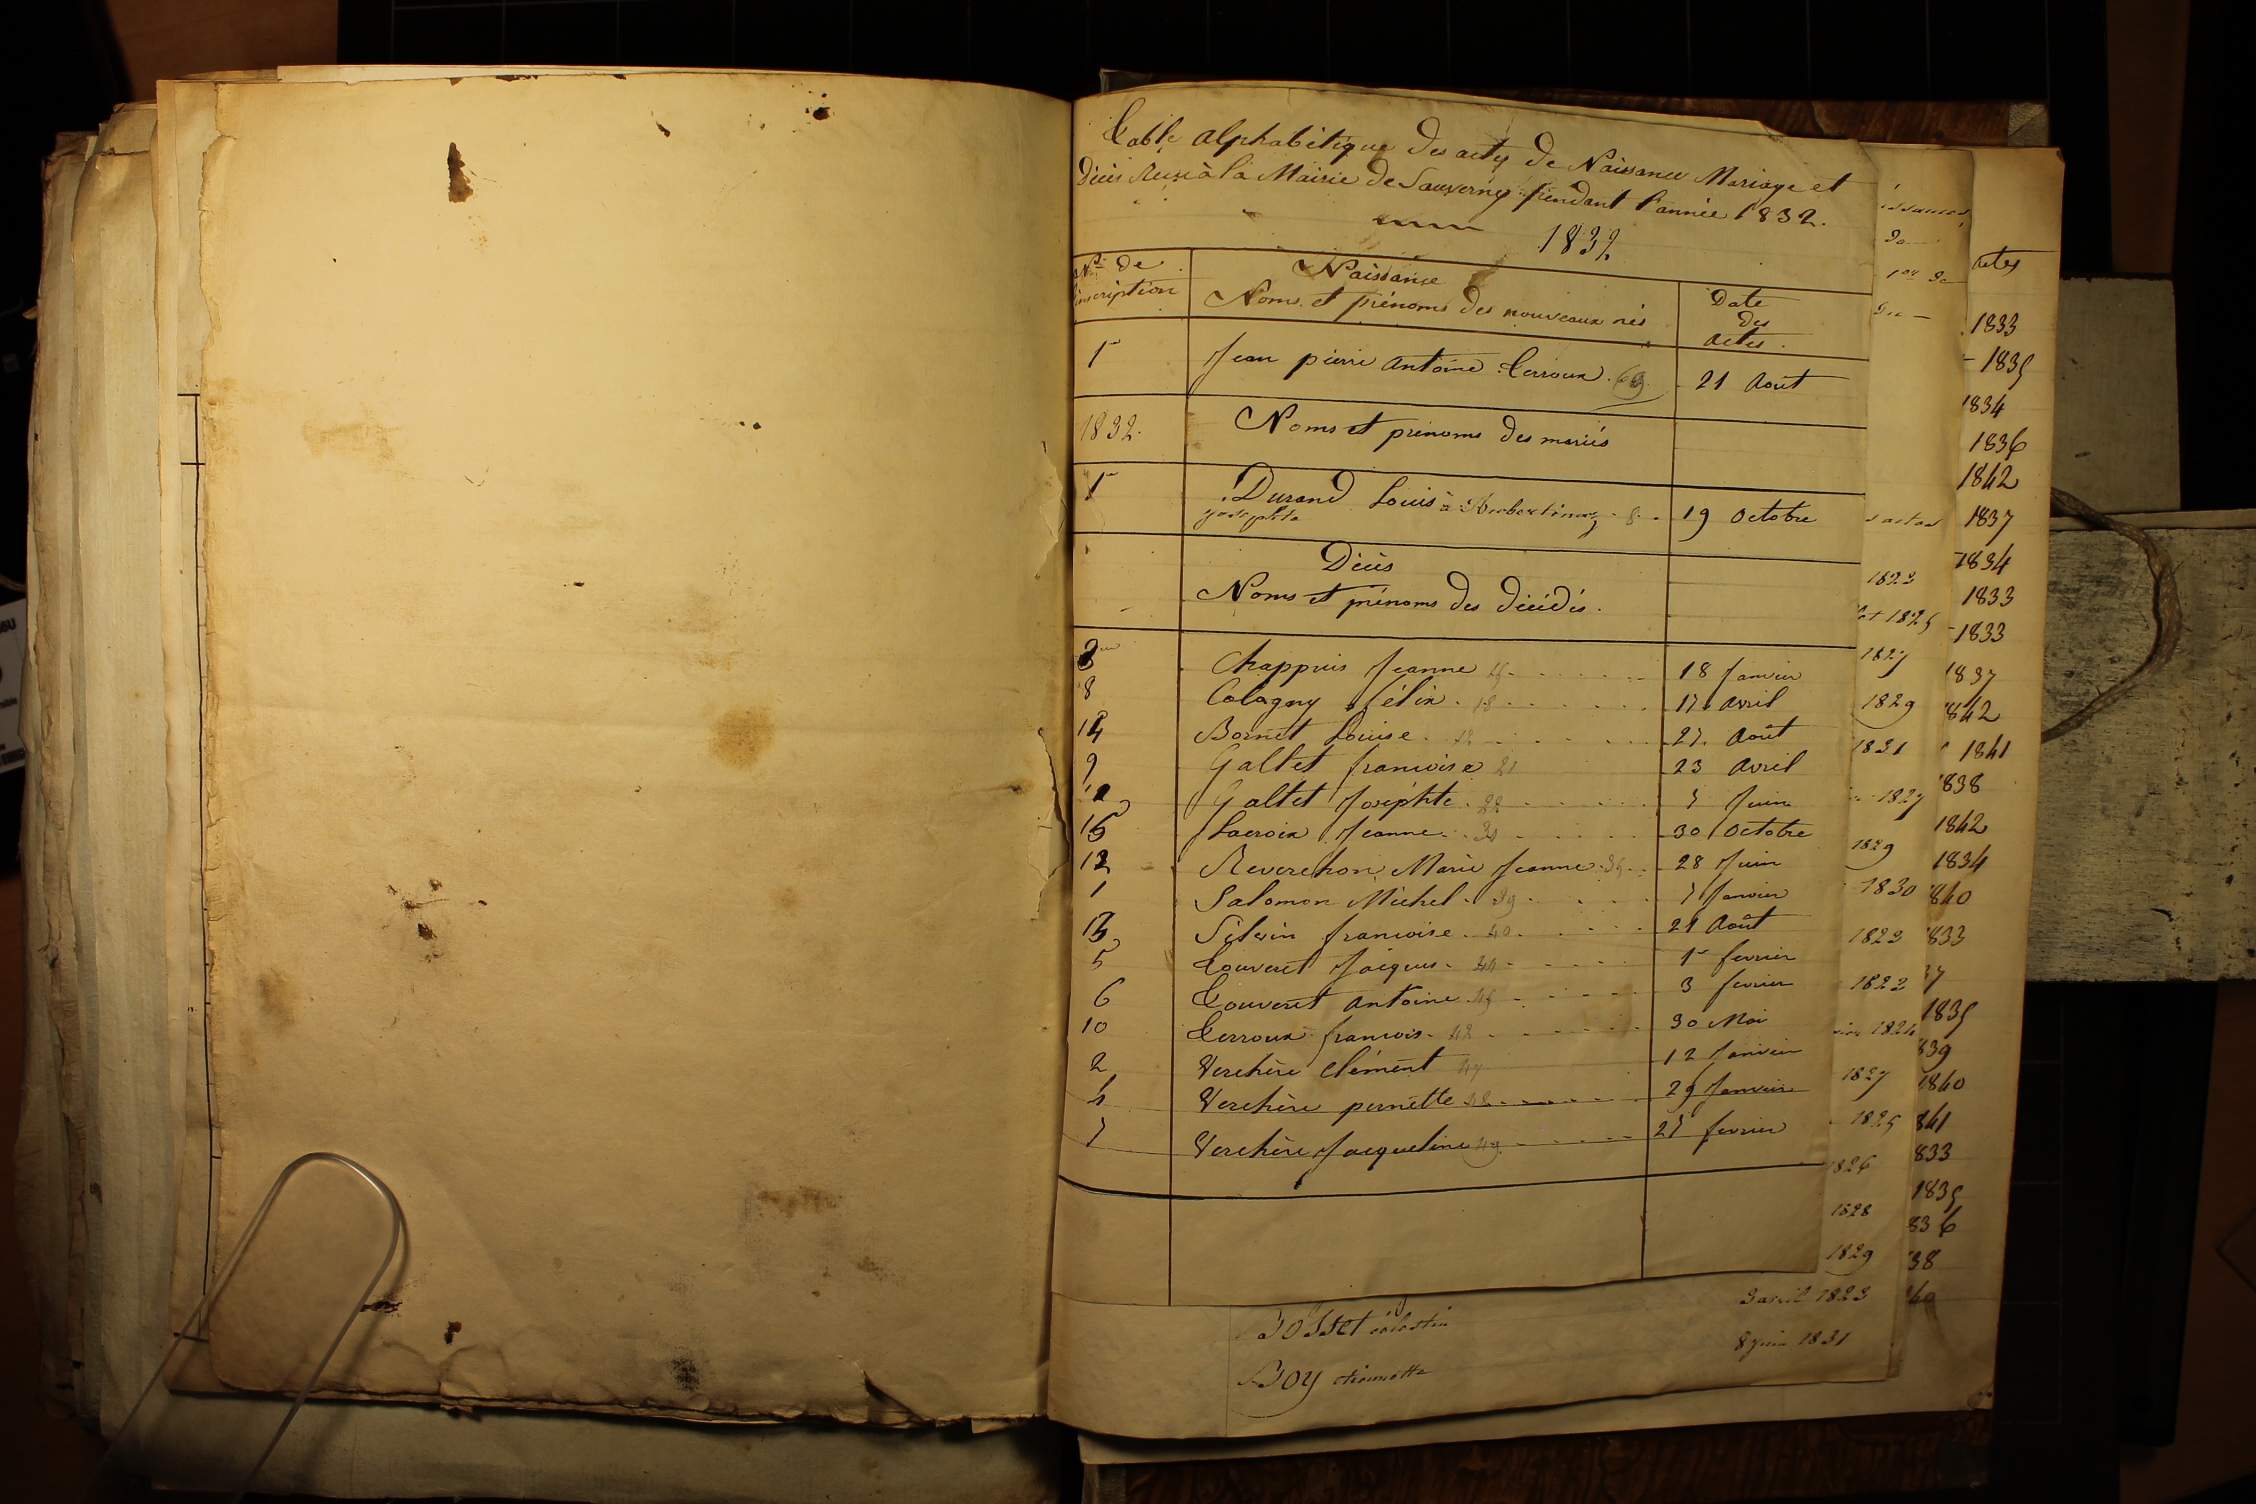 Table alphabétique des actes de Naissance Mariage et
Décès Reçu à la Mairie de Sauverny pendant l'année 1832.
1832
Nos de l'inscription
Naissance
Noms et prénoms des nouveaux nés
Date des actes.
1r Jean pierre antoine Terroux 21 Août
1832. Noms et prénoms des mariés
1r Durand Louis à 8 19 Octobre
josephte
Décès
Noms et prénoms des décédés.
3 Chappuis Jeanne 18 Janvier
8 Colagny félix 18 17 avril
14 Bornet Louise 27 Août
9 Galtet francoise 21 23 avril
Galtet Josephte 22 5 Juin
15 Lacroix Jeanne 30 Octobre
12 Reverchon Marie Jeanne 28 Juin
1 Salomon Michel 39 7 Janvier
13 françoise 40 21 Août
5 Touveret Jacques 44 1r fevrier
6 Touveret antoine 45 3 fevrier
10 Terroux francois 42 30 Mai
2 Verchère Clément 47 12 Janvier
4 Verchère pernette 48 29 Janvier
7 Verchère Jacqueline 49 25 fevrier
Bosset célestin 3 avril 1823
Boy etiennette 8 juin 1831
issances
s actes
1823
1825
1827
1829
1831
1827
1829
1830
1823
1823
1824
1827
1825
1826
1828
1829
actes
1833
1835
1834
1836
1842
1837
1834
1833
1833
1837
842
1841
838
1842
1834
840
833
37
1835
839
1840
841
833
1835
836
38
40